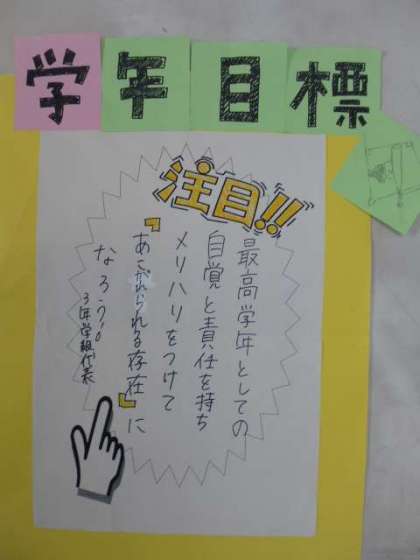 学年目標
注目!!
最高学年としての
自覚と責任を持ち
メリハリをつけて
『あこがれられる存在』に
なろう!!
3年学級代表